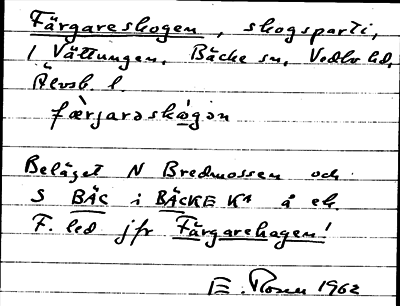 Färgareskogen, skogsparti,
i Vättungen, Bäcke sn, Vedbo hd,
Älvsb. l.
færjaraskògan
Beläget N Bredmossen och
S BÄC i BÄCKE Kª å ek.
F. led jfr Färgarehagen!
E. Rosen 1962